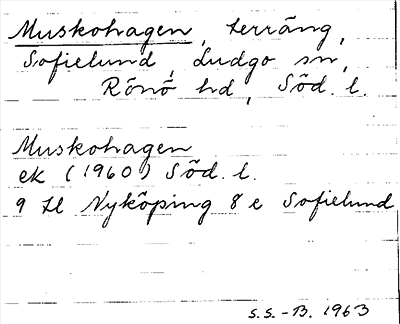 Muskohagen, terräng,
Sofielund, Ludgo sn,
Rönö hd, Söd. l.
Muskohagen
ek (1960) Söd. l.
9 H Nyköping 8 e Sofielund
S.S.-B. 1963